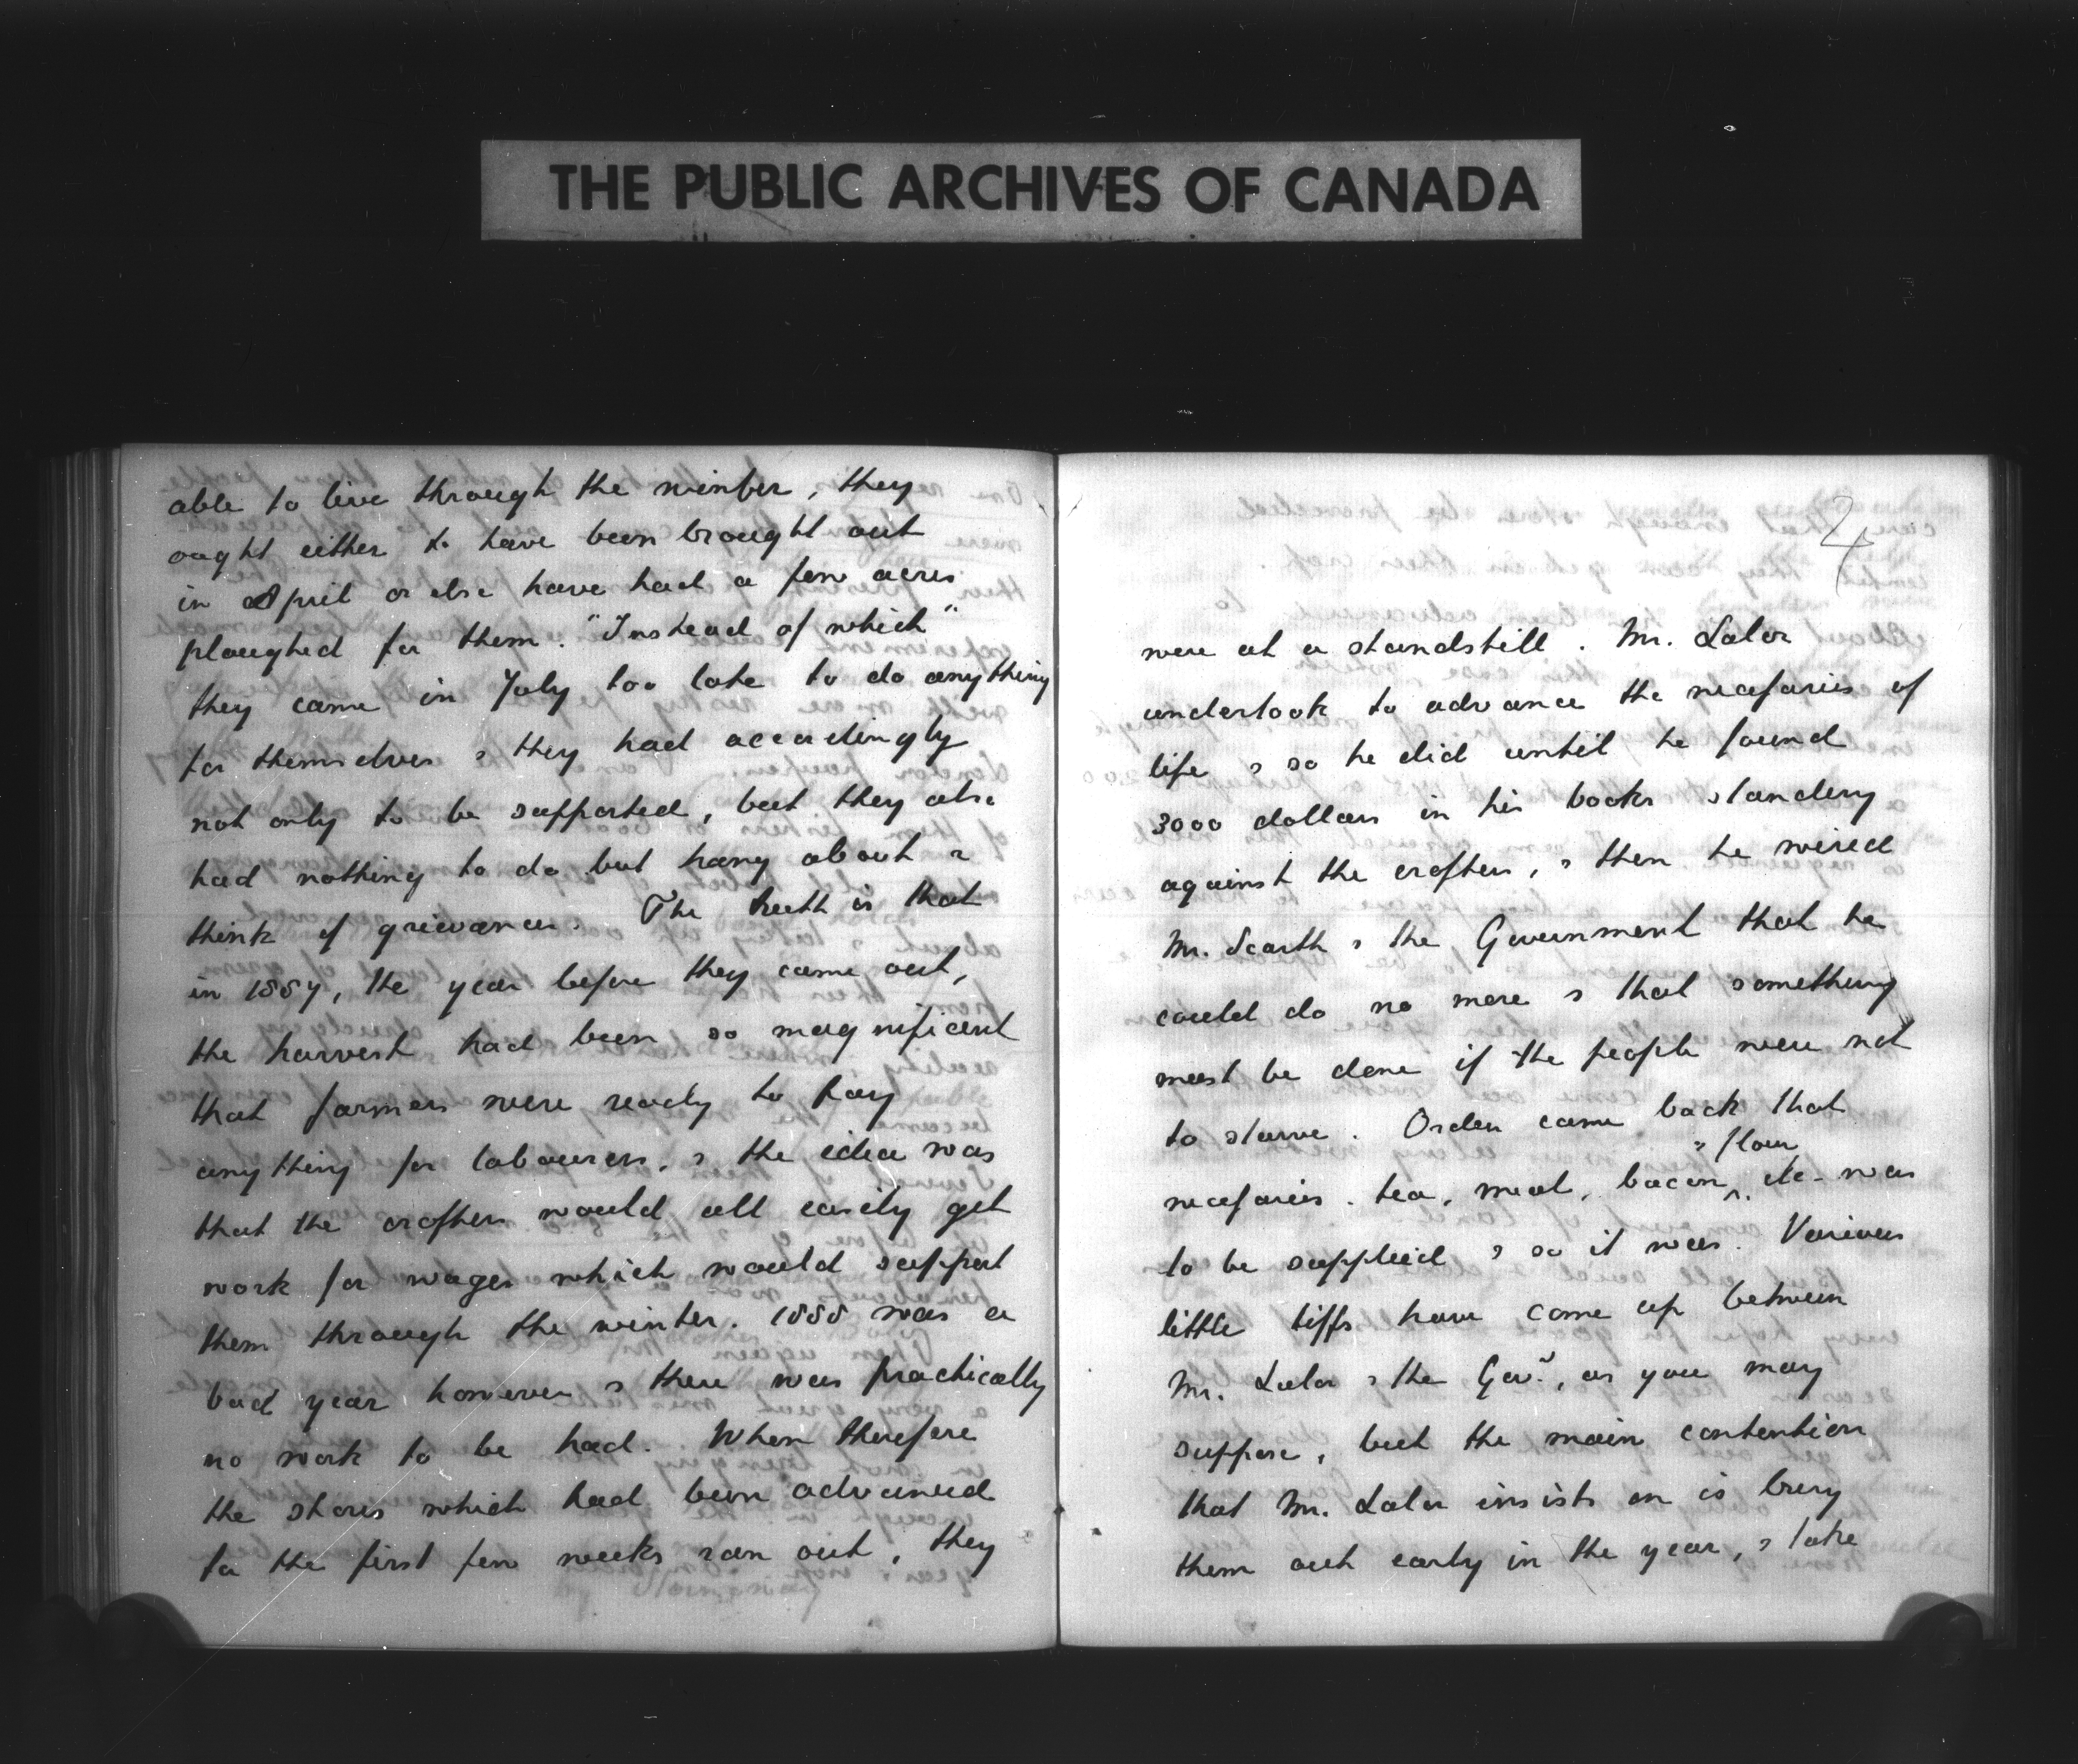 THE PUBLIC ARCHIVES OF CANADA
able to live through the winter, they
ought either to have been brought out
in April or else have had a few acres
ploughed for them. "Instead of which"
they came in July too late to do anything
for themselves & they had accordingly
not only to be supported, but they also
had nothing to do but hang about &
think of grievances. The truth is that
in 1887, the year before they came out,
the harvest had been so magnificent
that farmers were ready to pay
anything for labourers, & the idea was
that the crofters would all easily get
work for wages which would support
them through the winter. 1888 was a
bad year however & there was practically
no work to be had. When therefore
the stores which had been advanced
for the first few weeks ran out, they
4
were at a standstill. Mr. Lalor
undertook to advance the necessaries of
life & so he did until he found
3000 dollars in his books standing
against the crofters, & then he wired
Mr. Scarth & the Government that he
could do no more & that something
must be done if the people were not
to starve. Orders came back that
& flour
necessaries. tea, meal, bacon, etc. was
to be supplied & so it was. Various
little tiffs have come up between
Mr. Lalor & the Govt., as you may
suppose, but the main contention
that Mr. Lalor insists on is bring
them out early in the year, & take